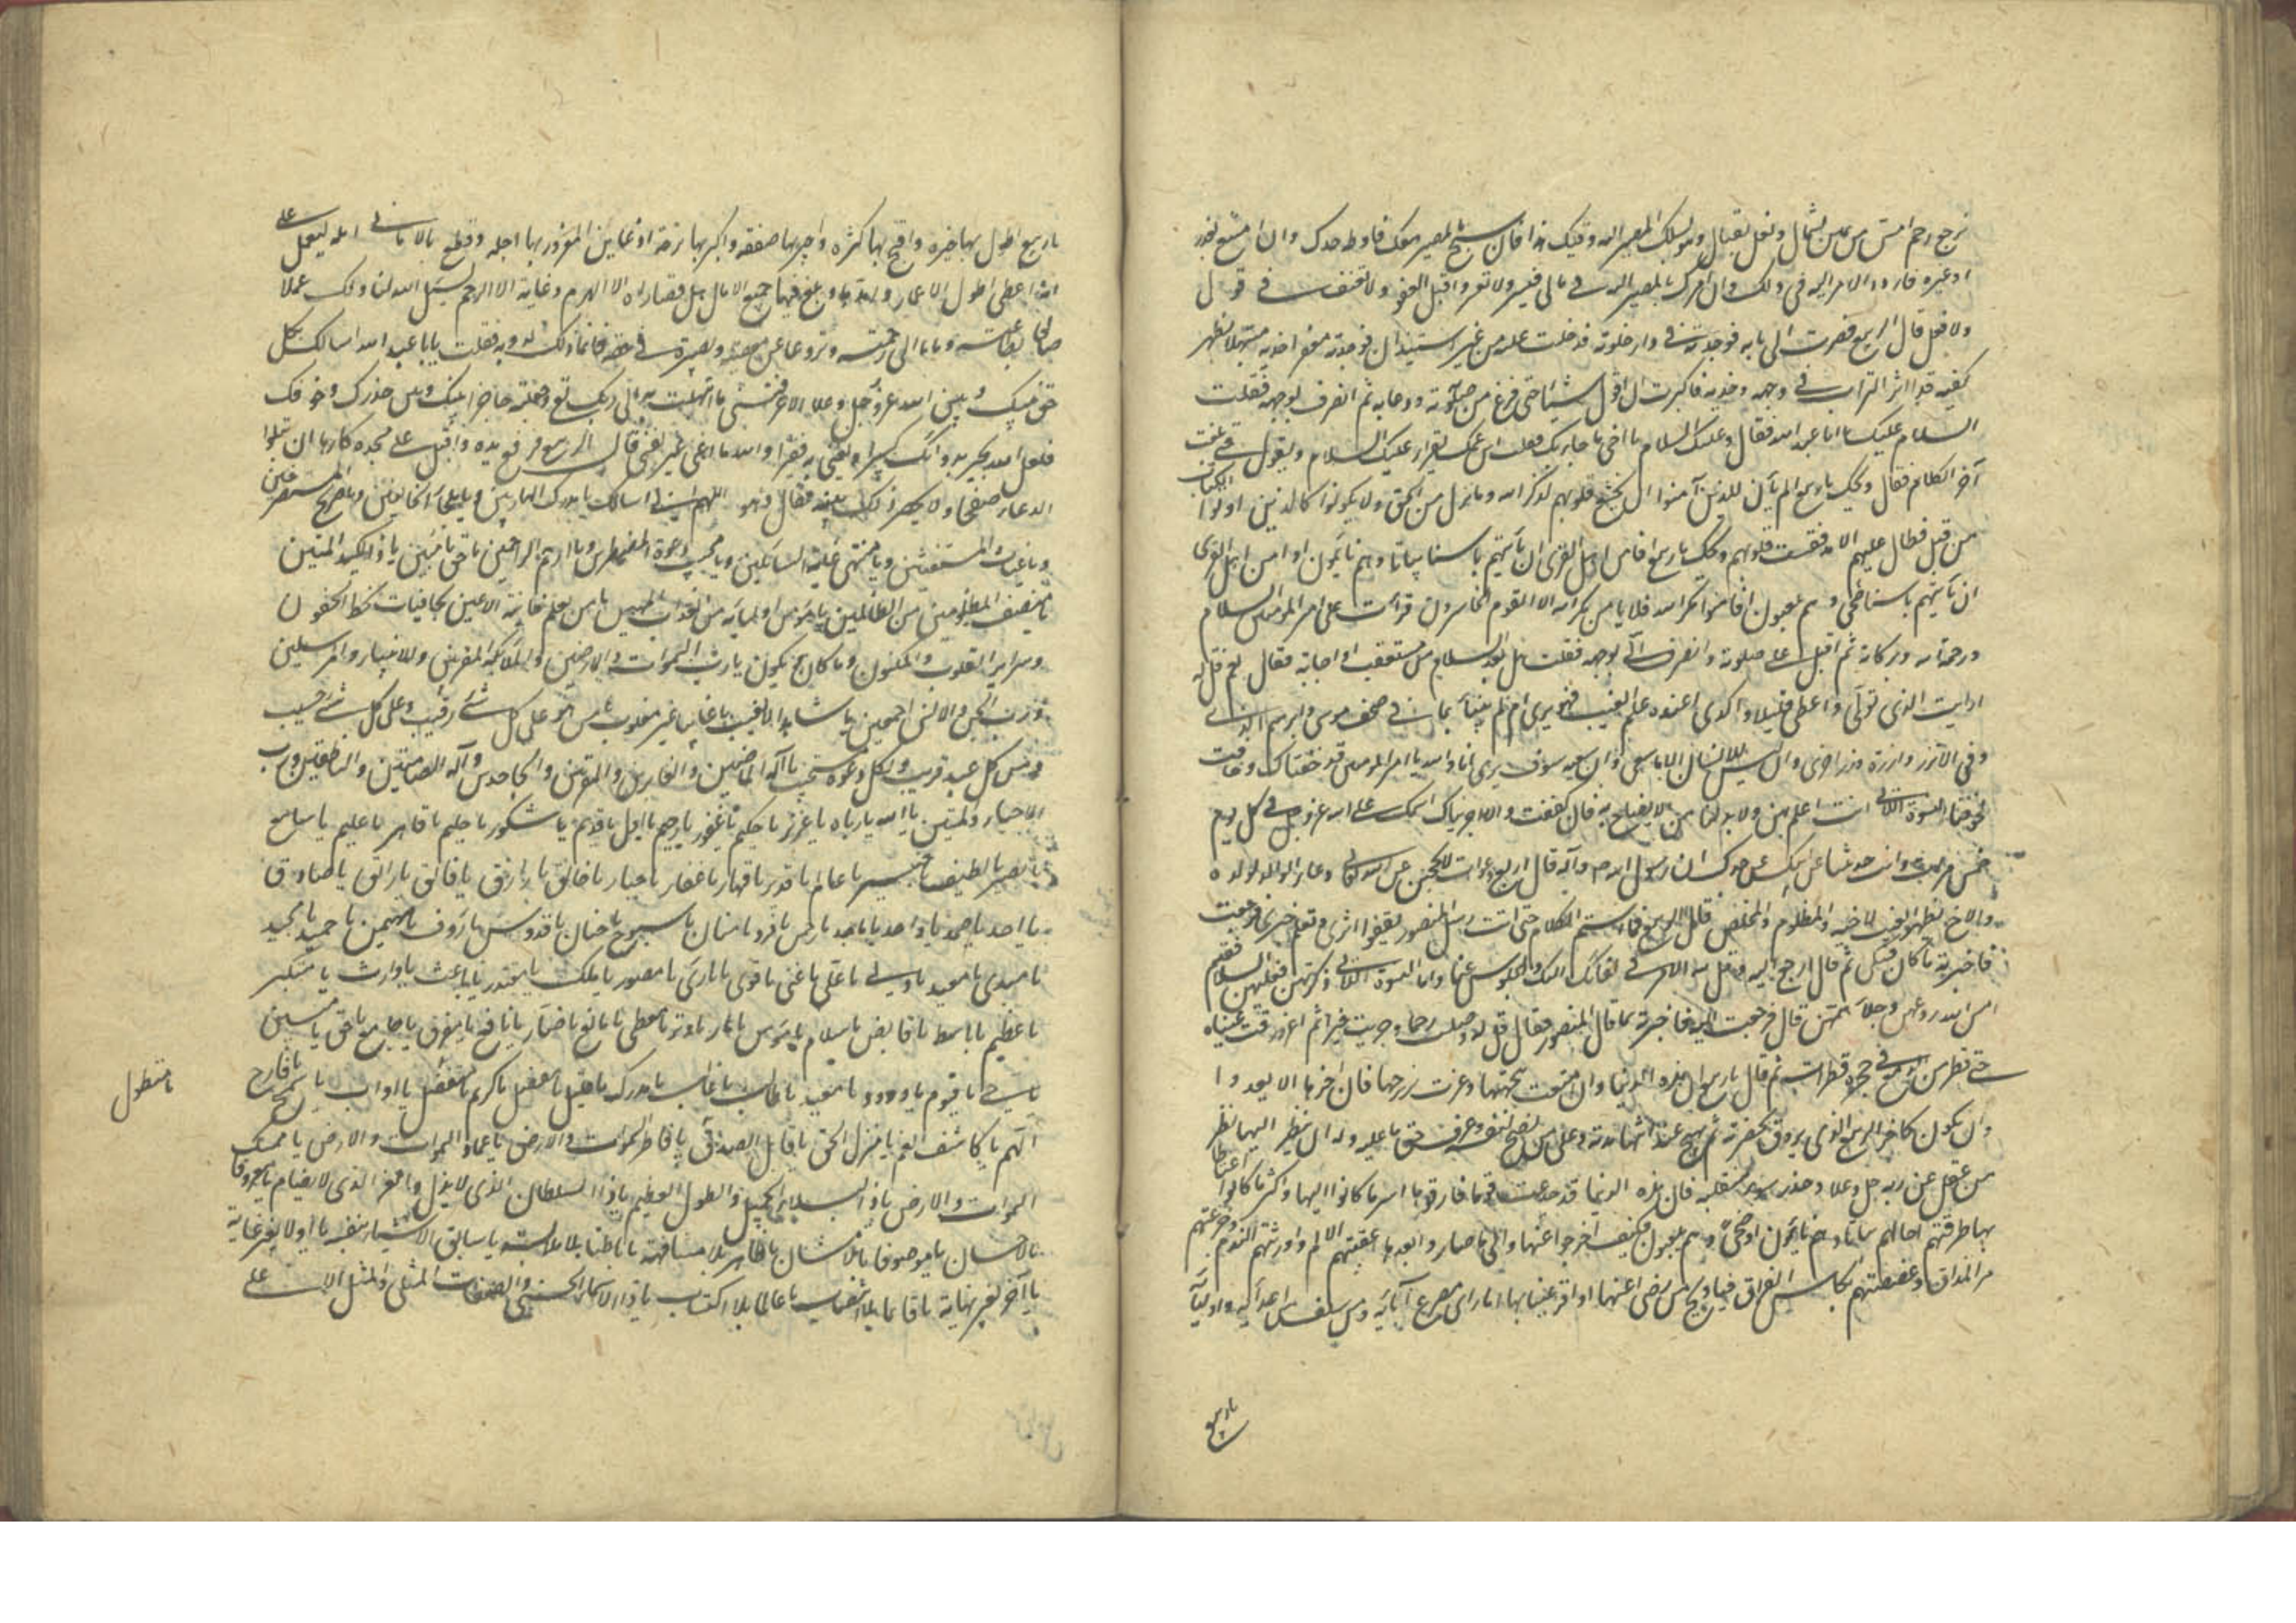 نرجع رحم امس من يمين لشمال ونعل لقبال وهو يسلك المصير اليه وقيك هذا فان سمح بالمصير معك فاوطه حدك وان امتنع بعذر
او غيره فاردد الامر اليه في ذلك وان امرك بالمصير اليه في مالي فيسر ولا تعسر واقبل العفو ولا تعنف في قول
ولا فعل قال الربيع فصرت الى بابه فوجدته في دار خلوته فدخلت عليه من غير استيذان فوجدته معفرا خديه مبتهلا بظهر
كفيه قد اثر التراب في وجهه وخديه فاكبرت ان اقول شيئا حتى فرغ من صلوته ودعايه ثم انصرف بوجهه فقلت
السلام عليك يا ابا عبد الله فقال وعليك السلام يا اخي ما جاء بك فقلت ابن عمك يقرا عليك السلام ويقول حتى بلغت
آخر الكلام فقال ويحك يا ربيع الم يأن للذين آمنوا ان تخشع قلوبهم لذكر الله وما نزل من الحق ولا يكونوا كالذين اوتوا الكتاب
من قبل فطال عليهم الامد فقست قلوبهم ويحك يا ربيع افامن اهل القرى ان يأتيهم باسنا بياتا وهم نايمون اوامن اهل القرى
ان يأتيهم باسنا ضحى وهم يلعبون افامنوا مكر الله فلا يامن مكر الله الا القوم الخاسرون قرأت على امير المؤمنين السلام
ورحمة الله وبركاته ثم اقبل على صلوته وانصرف الى بوجهه فقلت هل بعد السلام من مستعتب او اجابة فقال نعم قل له
ارايت الذي تولى واعطى قليلا واكدى اعنده علم الغيب فهو يرى ام لم ينبأ بما في صحف موسى وابرهيم الذي
وفى الا تزر وازرة وزر اخرى وان ليس للانسان الا ما سعى وان سعيه سوف يرى انا والله يا امير المؤمنين قد خفناك وخافت
لخوفنا النسوة اللاتي انت اعلم بهن ولا بد لنا من الايضاح به فان كففت والا اجرينا اسمك على الله عز وجل في كل يوم
خمس مرات وانت حدثتنا عن ابيك عن جدك ان رسول الله ص وآله قال اربع دعوات لا يحجبن عن الله تعالى دعاء الوالد لولده
والاخ بظهر الغيب لاخيه والمظلوم والمخلص قال الربيع فما استتم الكلام حتى اتت رسل المنصور يقفوا اثرى وتعلم خبرى فرجعت
فاخبرته بما كان فبكى ثم قال ارجع اليه وقل له الامر في لقائك اليك والجلوس عنا واما النسوة اللاتي ذكرتهن فعليهن السلام فقد
امن الله روعهن وجلا همهن قال فرجعت اليه فاخبرته بما قال المنصور فقال قل له وصلت رحما وجزيت خيرا ثم اغرورقت عيناه
حتى قطر من الدمع في حجره قطرات ثم قال يا ربيع ان هذه الدنيا وان امتعت ببهجتها وغرت بزبرجها فان اخرها لا يعدوا
ان يكون كاخر الربيع الذي يروق بخضرته ثم يهيج عند انتهاء مدته وعلى من نصح لنفسه وعرف حق ما عليه وله ان ينظر اليها نظر
من عقل عن ربه جل وعلا وحذر سوء منقلبه فان هذه الدنيا قد خدعت قوما فارقوها اسر ما كانوا اليها واكثر ما كانوا اغتباطا
بها طرقتهم اجالهم بياتا وهم نايمون او ضحى وهم يلعبون فكيف اخرجوا عنها والى ما صاروا بعدها اعقبتهم الالم واورثتهم الندم وجرعتهم
مر المذاق وغصصتهم بكاس الفراق فيا ويح من رضى عنها او اقر عينا بها اما راى مصرع آبائه ومن سلف من اعدائه واوليائه
يا ربيع
يا ربيع اطول بها حيرة واقبح بها كثرة واخسر بها صفقة واكبر بها ترحة اذا عاين المغرور بها اجله وقطع بالاماني امله ليعمل على
انه اعطى اطول الاعمار وامدها وبلغ فيها جميع الامال هل قصاراه الا الهرم وغايته الا الوخم نسئل الله لنا ولك عملا
صالحا بطاعته ومابا الى رحمته ونزوعا عن معصيته وبصيرة في حقه فانما ذلك له وبه فقلت يا ابا عبد الله اسالك بكل
حق بينك وبين الله عز وجل وعلا الا عرفتني ما ابتهلت به الى ربك تع وجعلته حاجزا بينك وبين حذرك وخوفك
فلعل الله يجبر بدوائك كسيرا ويغنى به فقيرا والله ما اعنى غير نفسى قال الربيع فرفع يده واقبل على مسجده كارها ان يتلوا
الدعاء صفحا ولا يحضر ذلك بنية فقال وهو اللهم انى اسالك يا مدرك الهاربين ويا ملجأ الخائفين ويا صريخ المستصرخين
ويا غياث المستغيثين ويا منتهى غاية السائلين ويا مجيب دعوة المضطرين ويا ارحم الراحمين يا حق يا مبين يا ذا الكيد المتين
يا منصف المظلومين من الظالمين يا مؤمن اوليائه من العذاب المهين يا من يعلم خائنة الاعين بخافيات لحظ الجفون
وسراير القلوب والمكنون وما كان وما يكون يا رب السموات والارضين والملائكة المقربين والانبياء والمرسلين
ورب الجن والانس اجمعين يا شاهدا لا يغيب يا غالبا غير مغلوب يا من هو على كل شئ رقيب وعلى كل شئ حسيب
ومن كل عبد قريب ولكل دعوة مستجيب يا آله الماضين والغابرين والمقرين والجاحدين وآله الصامتين والناطقين ورب
الاحياء والميتين يا الله يا رباه يا عزيز يا حكيم يا غفور يا رحيم يا اول يا قديم يا شكور يا حليم يا قاهر يا عليم يا سامع
يا بصير يا لطيف يا خبير يا عالم يا قدير يا قهار يا غفار يا جبار يا خالق يا رازق يا فاتق يا راتق يا صادق
يا احد يا صمد يا واحد يا ماجد يا رحمن يا فرد يا منان يا سبوح يا حنان يا قدوس يا رؤف يا مهيمن يا حميد يا مجيد
يا مبدى يا معيد يا ولى يا على يا غنى يا قوى يا بارئ يا مصور يا ملك يا مقتدر يا باعث يا وارث يا متكبر
يا عظيم يا باسط يا قابض يا سلام يا مؤمن يا بار يا وتر يا معطى يا مانع يا ضار يا نافع يا مفرق يا جامع يا حق يا مبين
يا حى يا قيوم يا ودود يا معيد يا طالب يا غالب يا مدرك يا جليل يا مفضل يا كريم يا متفضل يا متطول يا اواب يا سمح يا فارج
الهم يا كاشف الغم يا منزل الحق يا قابل الصدق يا فاطر السموات والارض يا عماد السموات والارض يا ممسك
السموات والارض يا ذا البلاء الجميل والطول العظيم يا ذا السلطان الذى لا يذل والعز الذى لا يضام يا معروفا
بالاحسان يا موصوفا بالامتنان يا ظاهر بلا مشافهة يا باطنا بلا ملامسة يا سابق الاشياء بنفسه يا اولا بغير غاية
يا آخر بغير نهاية يا قائما بلا انتصاب يا عالما بلا اكتساب يا ذا الاسماء الحسنى والصفات المثلى والمثل الاعلى